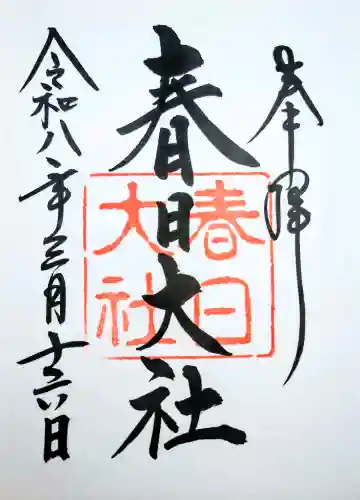 奉拝
春日大社
春日
大社
令和八年三月十六日